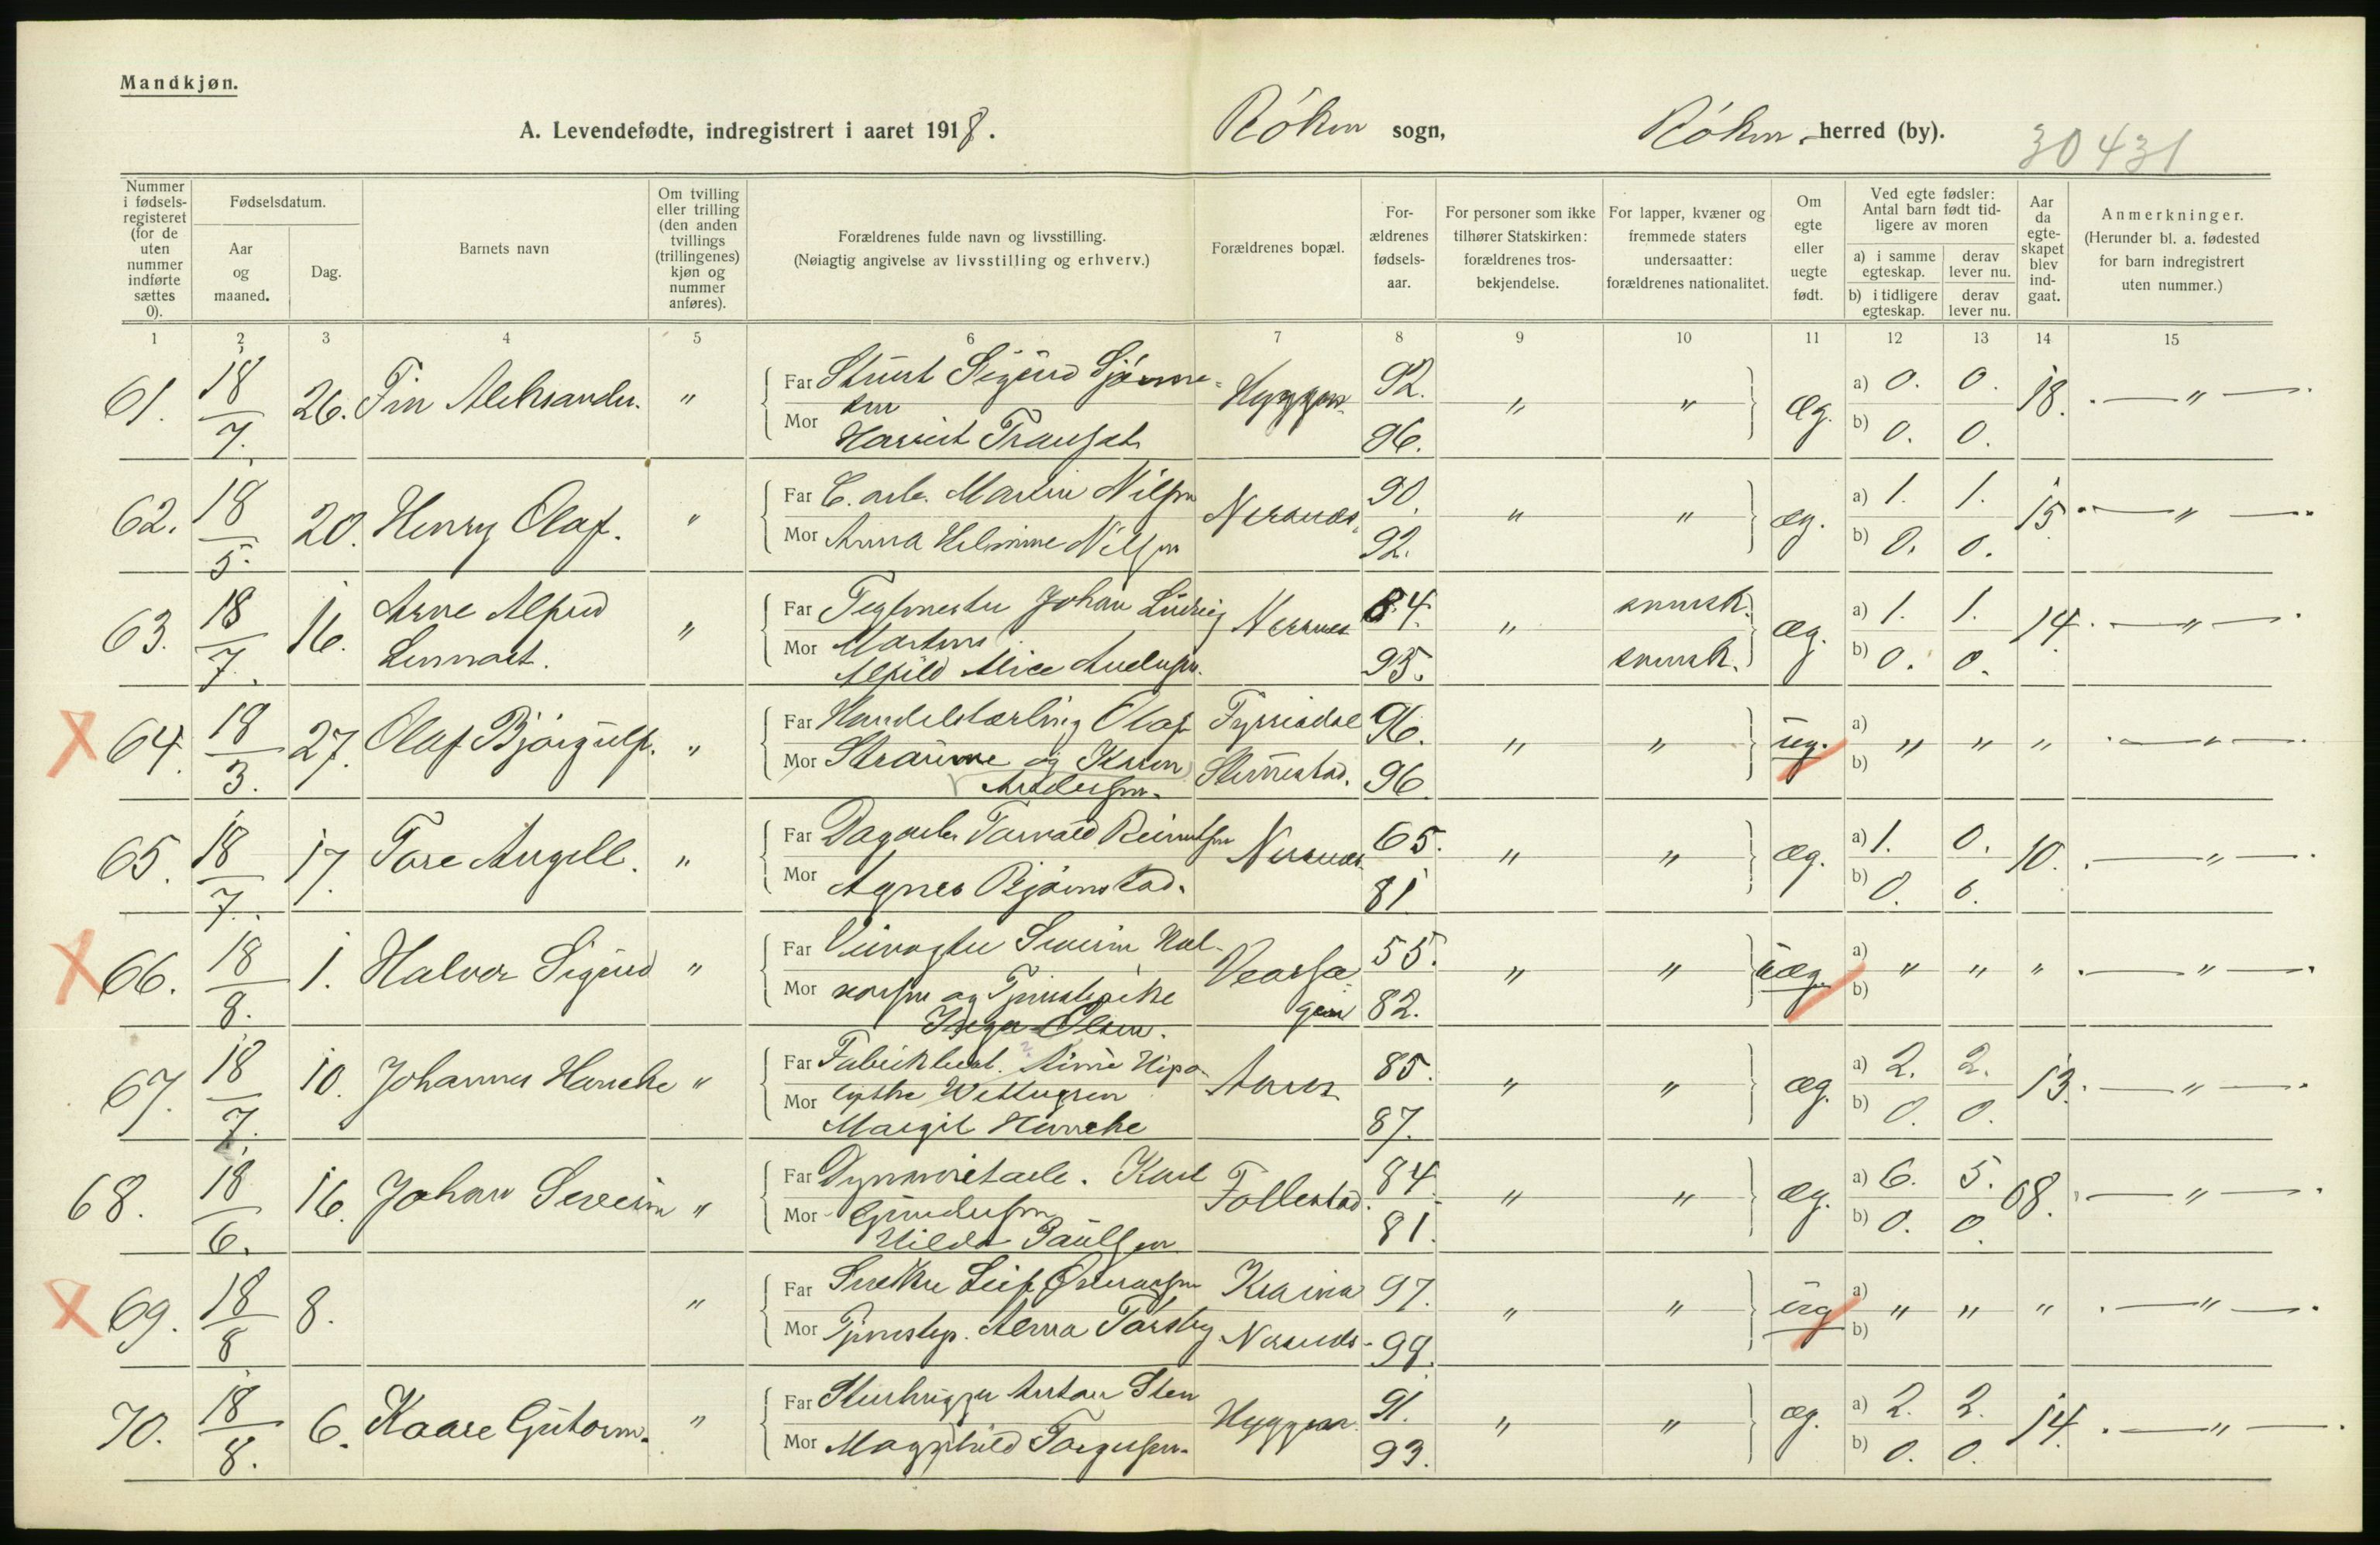 Mandkjøn.
A. Levendefødte, indregistrert i aaret 1918. Røken sogn, Røken herred (by).
30431
Nummer i fødselsregisteret (for de uten nummer indførte sættes 0).
Fødselsdatum.
Aar og maaned.
Dag.
Barnets navn
Om tvilling eller trilling (den anden tvillings (trillingenes) kjøn og nummer anføres).
Forældrenes fulde navn og livsstilling.
(Nøiagtig angivelse av livsstilling og erhverv.)
Forældrenes bopæl.
Forældrenes fødselsaar.
For personer som ikke tilhører Statskirken: forældrenes trosbekjendelse.
For lapper, kvæner og fremmede staters undersaatter: forældrenes nationalitet.
Om egte eller uegte født.
Ved egte fødsler: Antal barn født tidligere av moren
a) i samme egteskap.
derav lever nu.
b) i tidligere egteskap.
derav lever nu.
Aar da egteskapet blev indgaat.
Anmerkninger.
(Herunder bl. a. fødested for barn indregistrert uten nummer.)
1 2 3 4 5 6 7 8 9 10 11 12 13 14 15
61. 18/7. 26. Fin Aleksander. " Far Sigurd Hyggen 92. " " æg. a) 0. 0. 18. — " —
Mor Harriet 96. b) 0. 0.
62. 18/5. 20. Henry Olaf. " Far Martin Nilsen Nersnes 90. " " æg. a) 1. 1. 15 — " —
Mor Anna Helmine Nilsen 92. b) 0. 0.
63. 18/7. 16. Arne Alfred " Far Teglmester Johan Ludvig Nersnes 84. " svensk. æg. a) 1. 1. 14. — " —
Lennart. Mor Alice 95. svensk. b) 0. 0.
X 64. 18/3. 27. Olaf Bjørgulf. " Far Olaf 96. " " ueg. a) " " " — " —
Mor Straume og Karen Stennestad. 96 b)
Andersen.
65. 18/7. 17. Tore Angell. " Far Torvald Nersnes 65. " " æg. a) 1. 0. 10. — " —
Mor Agnes Bjørnstad. 81 b) 0. 0.
X 66. 18/8. 1. Halvor Sigurd " Far Veivogter Severin Hal- 55. " " uæg. a) " " " — " —
Mor vorsen og Tjenestepike 82. b)
Olsen.
67. 18/7. 10. Johannes Hancke " Far Aaros 85. " " æg. a) 2. 2. 13. — " —
Mor 87. b) 0. 0.
Margit Hancke
68. 18/6. 16. Johan Severin " Far Karl Follestad. 84. " " æg. a) 6. 5. 08. — " —
Mor Gundersen 81. b) 0. 0.
Hilda Paulsen
X 69. 18/8 8. " Far Snekker Leif Kraina 97. " " ueg a) " " " — " —
Mor Tjenestep. Nersnes 99. b)
70. 18/8. 6. Kaare Gutorm. " Far Stenhugger Anton Sten Hyggen 91. " " æg. a) 2. 2. 14. — " —
Mor Magnhild Torgersen. 93. b) 0. 0.